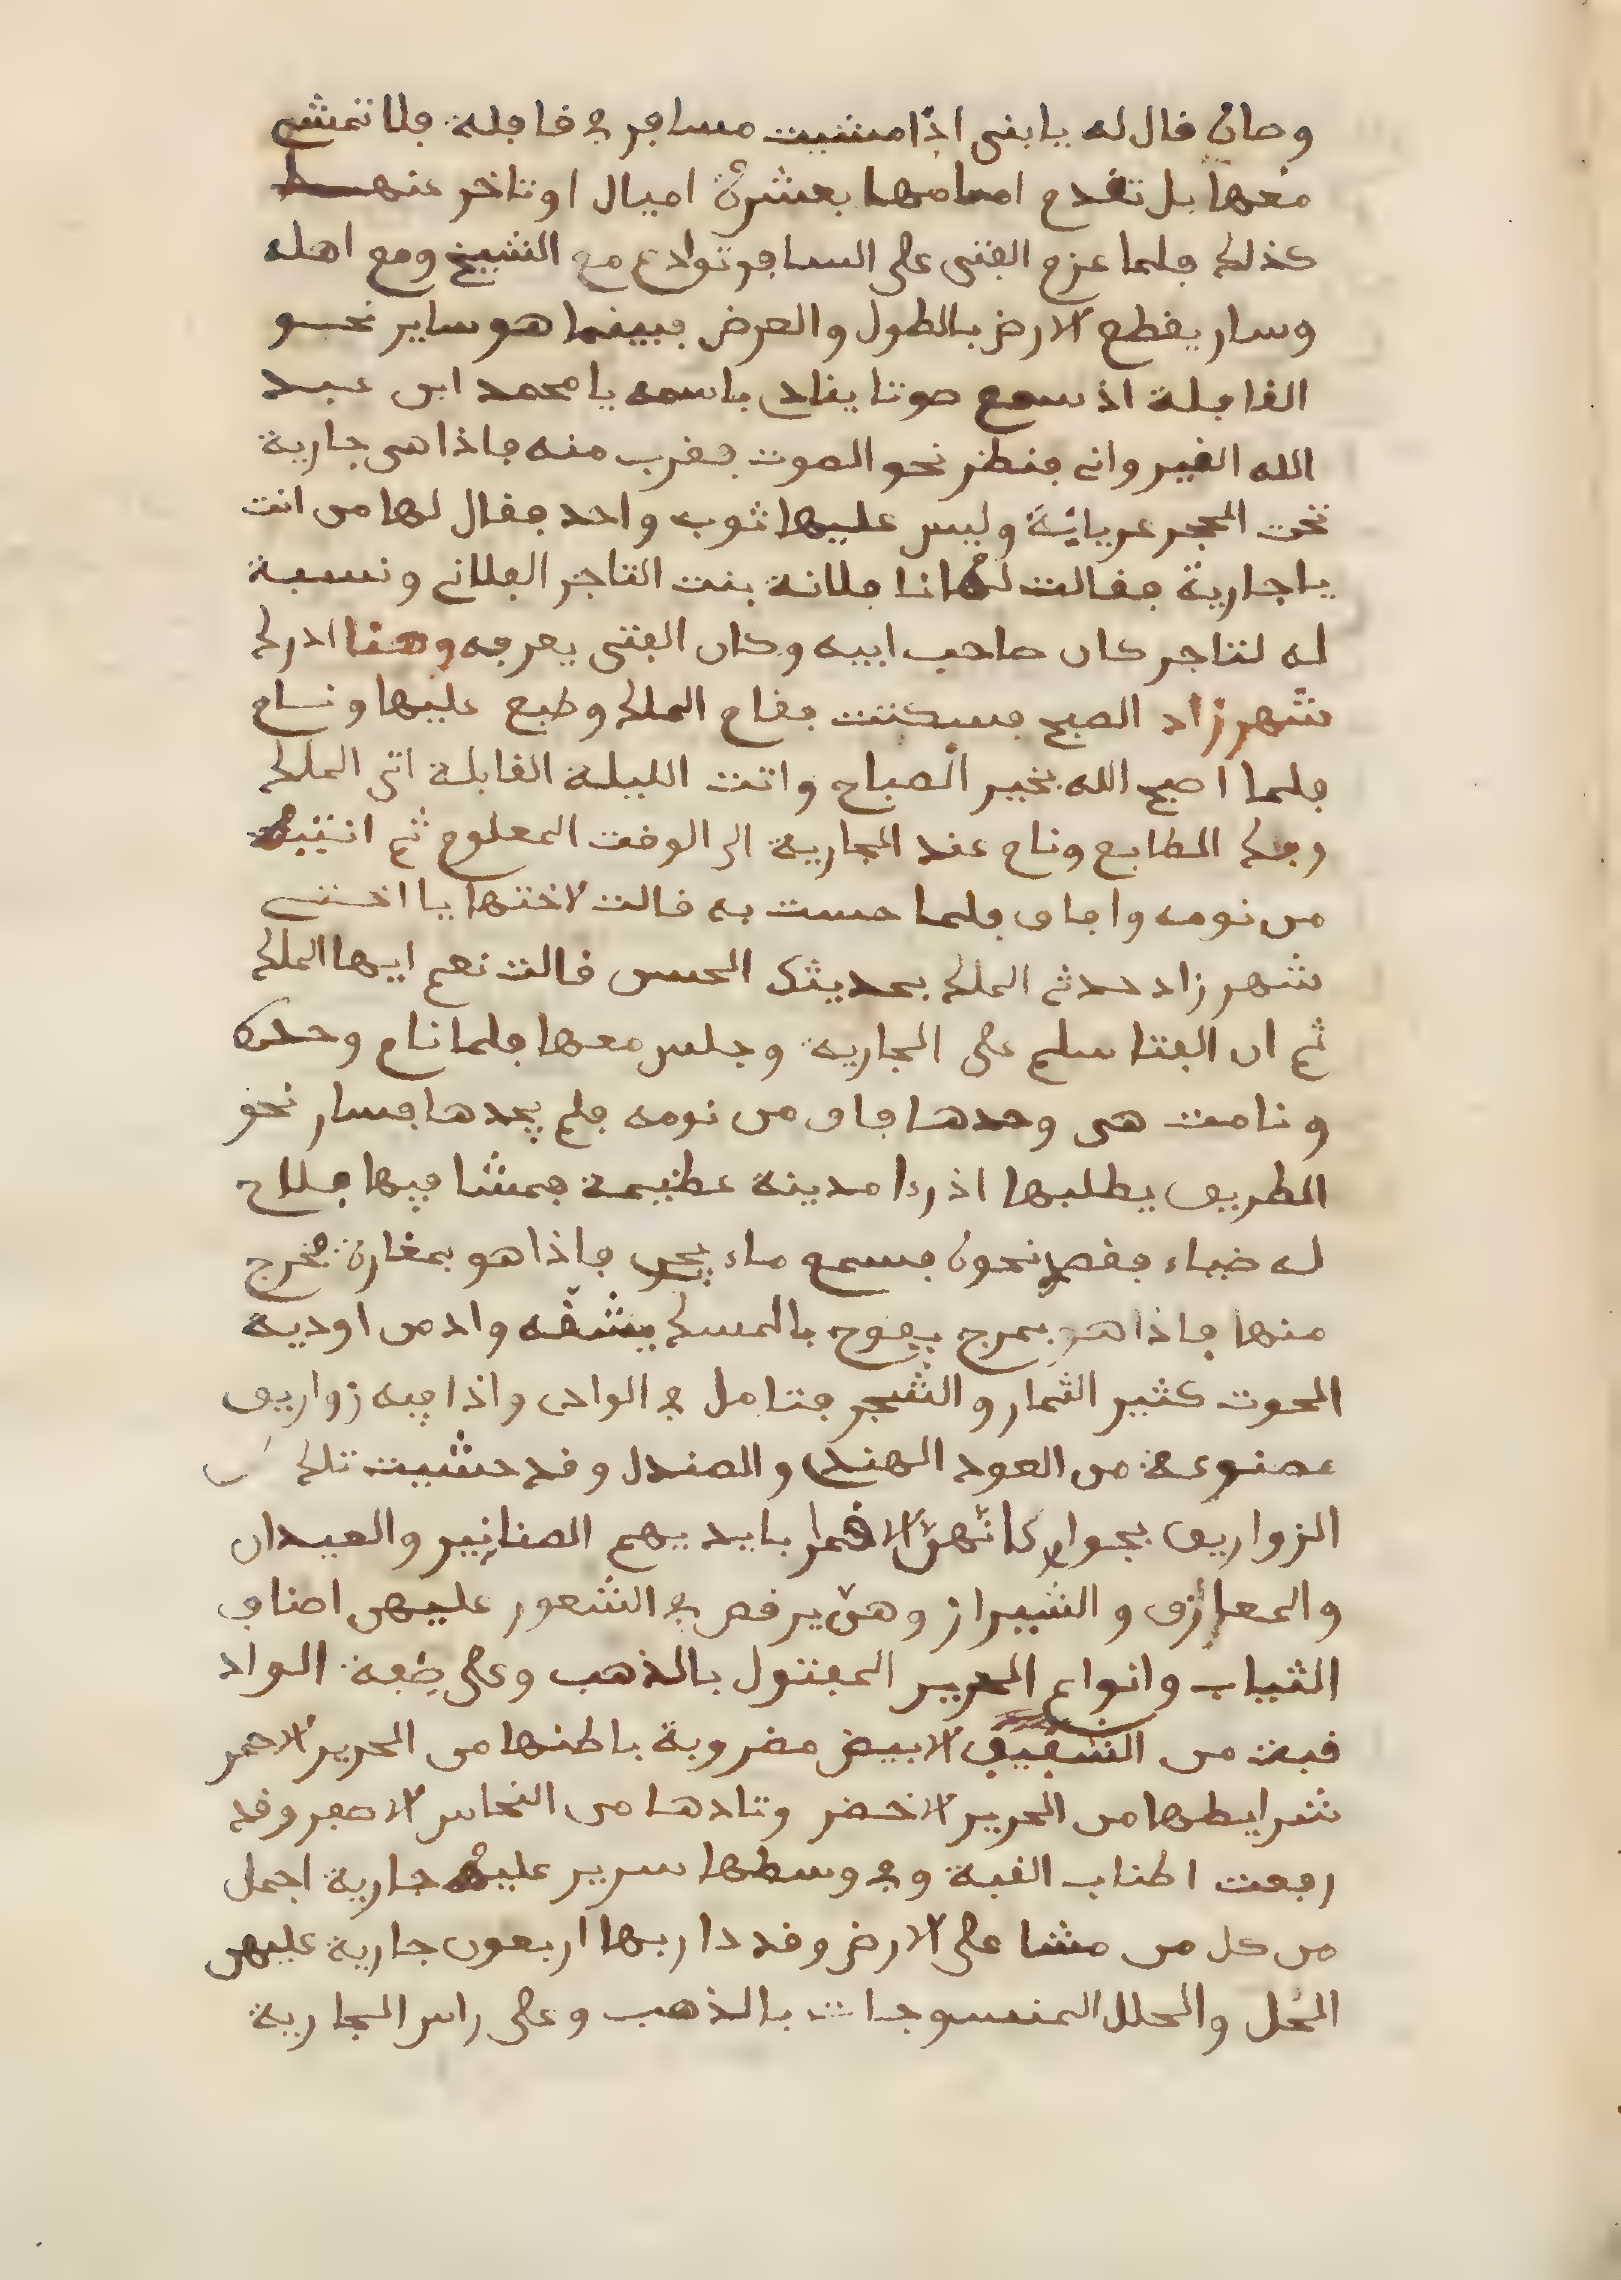 وصاه فال له يابنى اذا مشيت مسافر في فافلة فلا تمشي
معها بل تفدم امامها بعشرة اميال او تاخر عنها
كذلك فلما عزم الفتى على السافر توادع مع الشيخ ومع اهله
وسار يفطع الارض بالطول والعرض فبينما هو ساير نحو
الفافلة اذ سمع صوتا يناد باسمه يا محمد ابن عبد
الله الفيرواني فنظر نحو الصوت ففرب منه فاذا هى جارية
تحت الحجر عريانة وليس عليها ثوب واحد ففال لها من انت
يا جارية ففالت له انا فلانة بنت التاجر الفلاني ونسبة
له لتاجر كان صاحب ابيه وكان الفتى يعرفه وهنا ادرك
شهرزاد الصبح فسكتت ففام الملك وطبع عليها ونام
فلما اصبح الله بخير الصباح واتت الليلة الفابلة اتى الملك
وفك الطابع ونام عند الجارية الى الوفت المعلوم ثم انتبه
من نومه وافاق فلما حست به فالت لاختها يا اختي
شهرزاد حدث الملك بحديثك الحسن فالت نعم ايها الملك
ثم ان الفتا سلم على الجارية وجلس معها فلما نام وحده
ونامت هى وحدها فاق من نومه فلم يجدها فسار نحو
الطريق يطلبها اذ رءا مدينة عظيمة فمشا فيها فلاح
له ضياء ففصد نحوه فسمع ماء يجري فاذا هو بمغارة فخرج
منها فاذا هو بمرج يفوح بالمسك يشفه واد من اودية
الحوت كثير الثمار والشجر فتامل في الوادى واذا فيه زواريق
مصنوعة من العود الهندي والصندل وفد حشيت تلك
الزواريق بجوار كانهن الافمر بايديهم الصنانير والعيدان
والمعازق والشيراز وهن يرفص في الشعور عليهن اصناف
الثياب وانواع الحرير المفتول بالذهب وعلى ضفة الواد
فبة من الشفيف الابيض مضروبة باطنها من الحرير الاحمر
شرايطها من الحرير الاخضر وتادها من النحاس الاصفر وفد
رفعت اطناب الفبة وفي وسطها سرير عليه جارية اجمل
من كل من مشا على الارض وفد دار بها اربعون جارية عليهن
الحل والحلل المنسوجات بالذهب وعلى راس الجارية